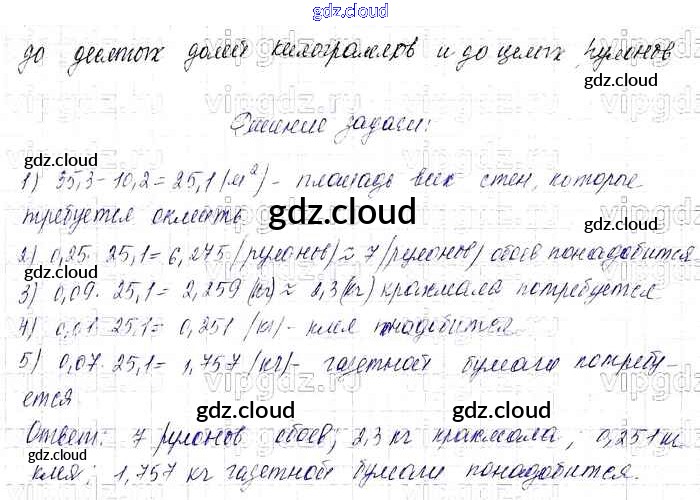 gdz.cloud
до десятых долей килограммов и до целых рулонов
Решение задачи:
1) 35,3-10,2=25,1(м²)- площадь всех стен, которые
требуется оклеить
2) 0,25·25,1=6,275(рулонов)≈7(рулонов) обоев понадобится
3) 0,09·25,1=2,259(кг)≈2,3(кг) крахмала потребуется
4) 0,01·25,1=0,251(кг)- клея понадобится
5) 0,07·25,1=1,757(кг)- газетной бумаги потребу-
ется
Ответ: 7 рулонов обоев; 2,3 кг крахмала; 0,251 кг
клея; 1,757 кг газетной бумаги понадобится.
gdz.cloud
gdz.cloud
gdz.cloud
gdz.cloud
gdz.cloud
gdz.cloud
gdz.cloud
gdz.cloud
gdz.cloud
gdz.cloud
gdz.cloud